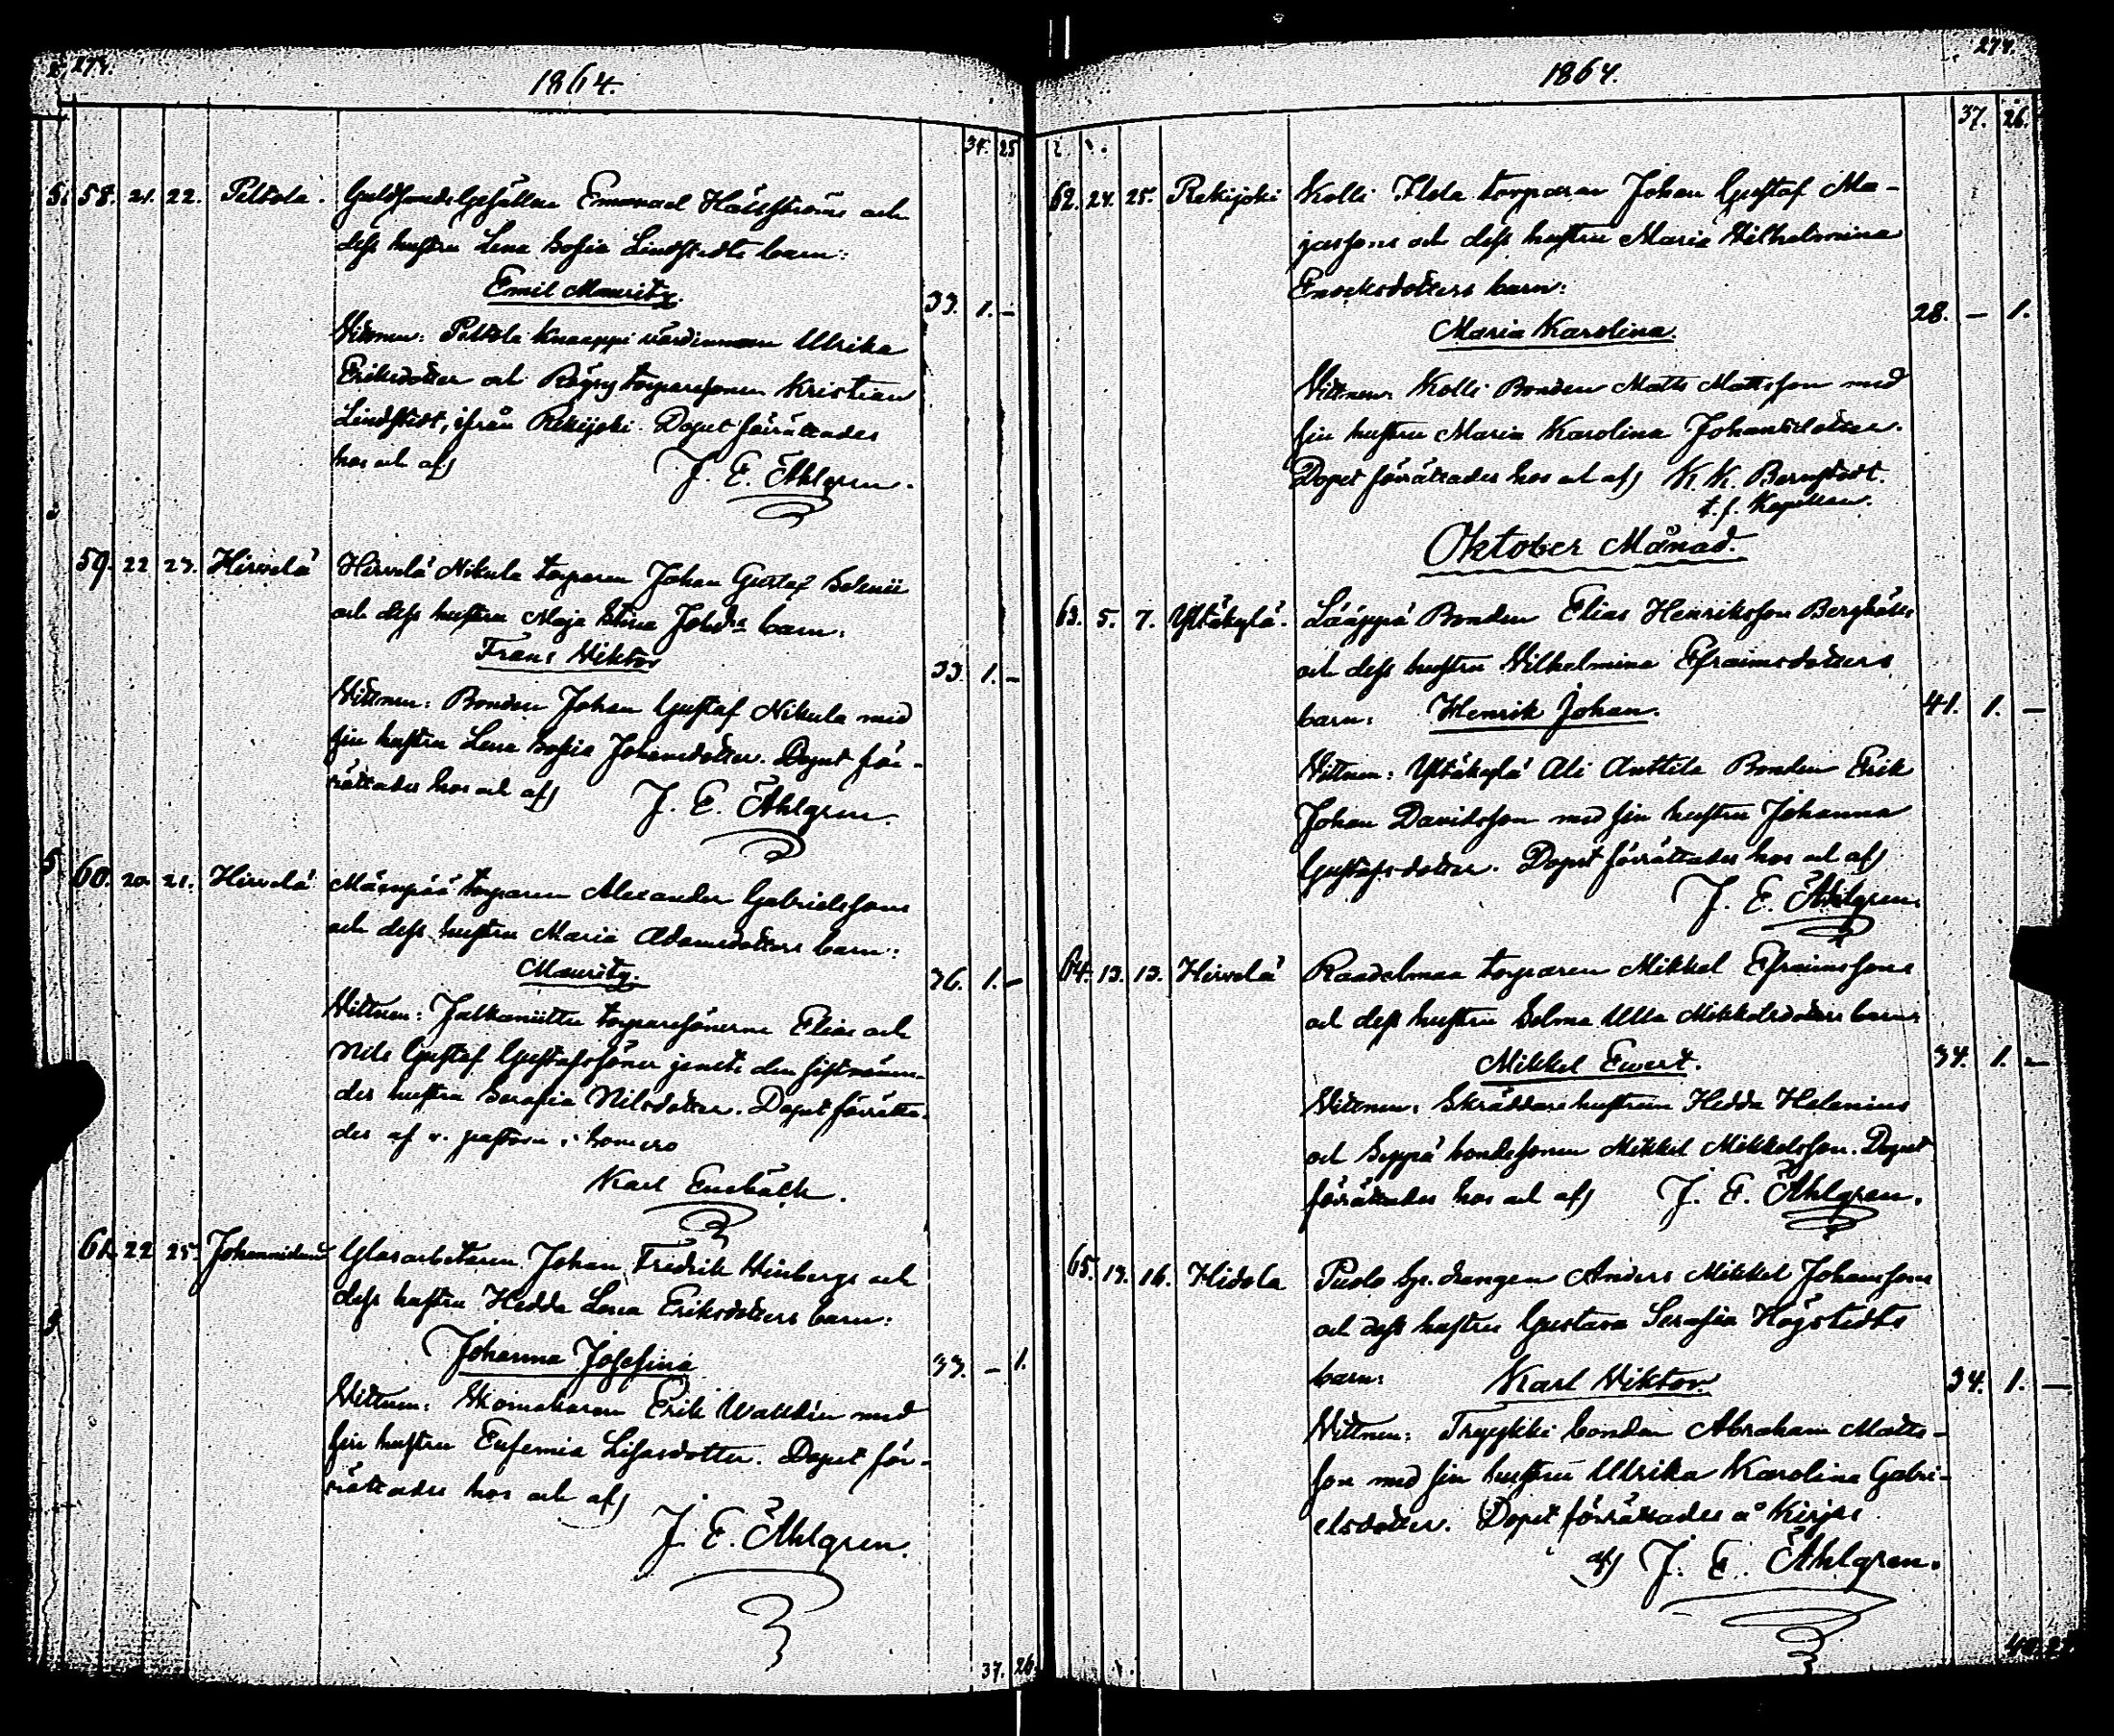 274.
1864.
34. 25
58. 21. 22. Peltola. Guldsmedsgesällen Emanuel Hällströms och
dess hustru Lena Sofia Lindstedts barn:
Emil Mauritz.
33. 1. —
Vittnen: Peltola Knaappi värdinnan Ulrika
Eriksdotter och torparesonen Kristian
Lindstedt, ifrån Rekijoki. Dopet förrättades
hos och af J. E. Åhlgren.
59. 22 23. Hirvelä Hirvelä Nikula torparen Johan Gustaf Selenii
och dess hustru Maja Stina Johds barn:
Frans Viktor
33. 1. —
Vittnen: Bonden Johan Gustaf Nikula med
sin hustru Lena Sofia Johansdotter. Dopet för-
rättades hos och af J. E. Åhlgren.
60. 20. 21. Hirvelä Mäenpää torparen Alexander Gabrielssons
och dess hustru Maria Adamsdotters barn:
Mauritz.
36. 1. —
Vittnen: torparesönerne Elias och
Nils Gustaf Gustafssöner jemte den sistnämn-
des hustru Serafia Nilsdotter. Dopet förrätta-
des af v. pastorn i Somero
Karl Enebäck.
61. 22 25. Johannislund Glasarbetaren Johan Fredrik Winbergs och
dess hustru Hedda Lena Eriksdotters barn:
Johanna Josefina
33. — 1.
Vittnen: Skomakaren Erik Walldin med
sin hustru Eufemia Lisasdotter. Dopet för-
rättades hos och af
J. E. Åhlgren.
37. 26
274.
1864.
37. 26.
62. 24. 25. Rekijoki Kolli Ilola torparen Johan Gustaf Ma-
jassons och dess hustru Maria Vilhelmina
Enocksdotters barn:
28. — 1.
Maria Karolina.
Vittnen: Kolli Bonden Matts Mattsson med
sin hustru Maria Karolina Johansdotter.
Dopet förrättades hos och af K. K. Bernstedt.
t. f. Kapellan.
Oktober Månad.
63. 5. 7. Yltäkylä. Lääppä Bonden Elias Henriksson Berghälls
och dess hustru Vilhelmina Efraimsdotters
barn: Henrik Johan.
41. 1. —
Vittnen: Yltäkylä Ali Anttila Bonden Erik
Johan Davidsson med sin hustru Johanna
Gustafsdotter. Dopet förrättades hos och af
J. E. Åhlgren.
64. 13. 13. Hirvelä Raadelmaa torparen Mikkel Efraimssons
och dess hustru Selma Ulla Mikkelsdotters barn:
Mikkel Evert.
34. 1. —
Vittnen: Skräddare hustrun Hedda Helenius
och Seppä bondesonen Mikkel Mikkelsson. Dopet
förrättades hos och af J. E. Åhlgren.
65. 13. 16. Hidola drängen Anders Mikkel Johanssons
och dess hustru Gustava Serafia Högstedts
barn: Karl Viktor.
34. 1. —
Vittnen: Tryykki bonden Abraham Matts-
son med sin hustru Ulrika Karolina Gabri-
elsdotter. Dopet förrättades å Kirjas
af J. E. Åhlgren.